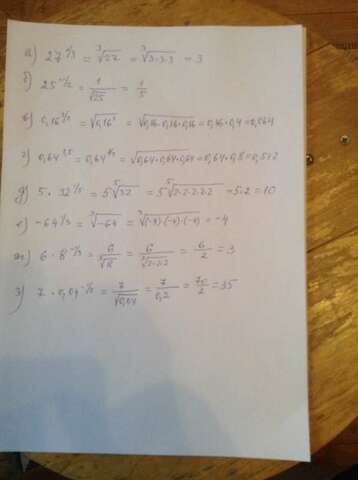 а) 27^(1/3) = ∛27 = ∛(3·3·3) = 3
б) 25^(-1/2) = 1/√25 = 1/5
в) 0,16^(3/2) = √(0,16³) = √(0,16·0,16·0,16) = 0,16·0,4 = 0,064
г) 0,64^(1,5) = 0,64^(3/2) = √(0,64·0,64·0,64) = 0,64·0,8 = 0,512
д) 5·32^(1/5) = 5⁵√32 = 5⁵√(2·2·2·2·2) = 5·2 = 10
е) -64^(1/3) = ∛-64 = ∛((-4)·(-4)·(-4)) = -4
ж) 6·8^(-1/3) = 6/∛8 = 6/∛(2·2·2) = 6/2 = 3
з) 7·0,04^(-1/2) = 7/√0,04 = 7/0,2 = 70/2 = 35